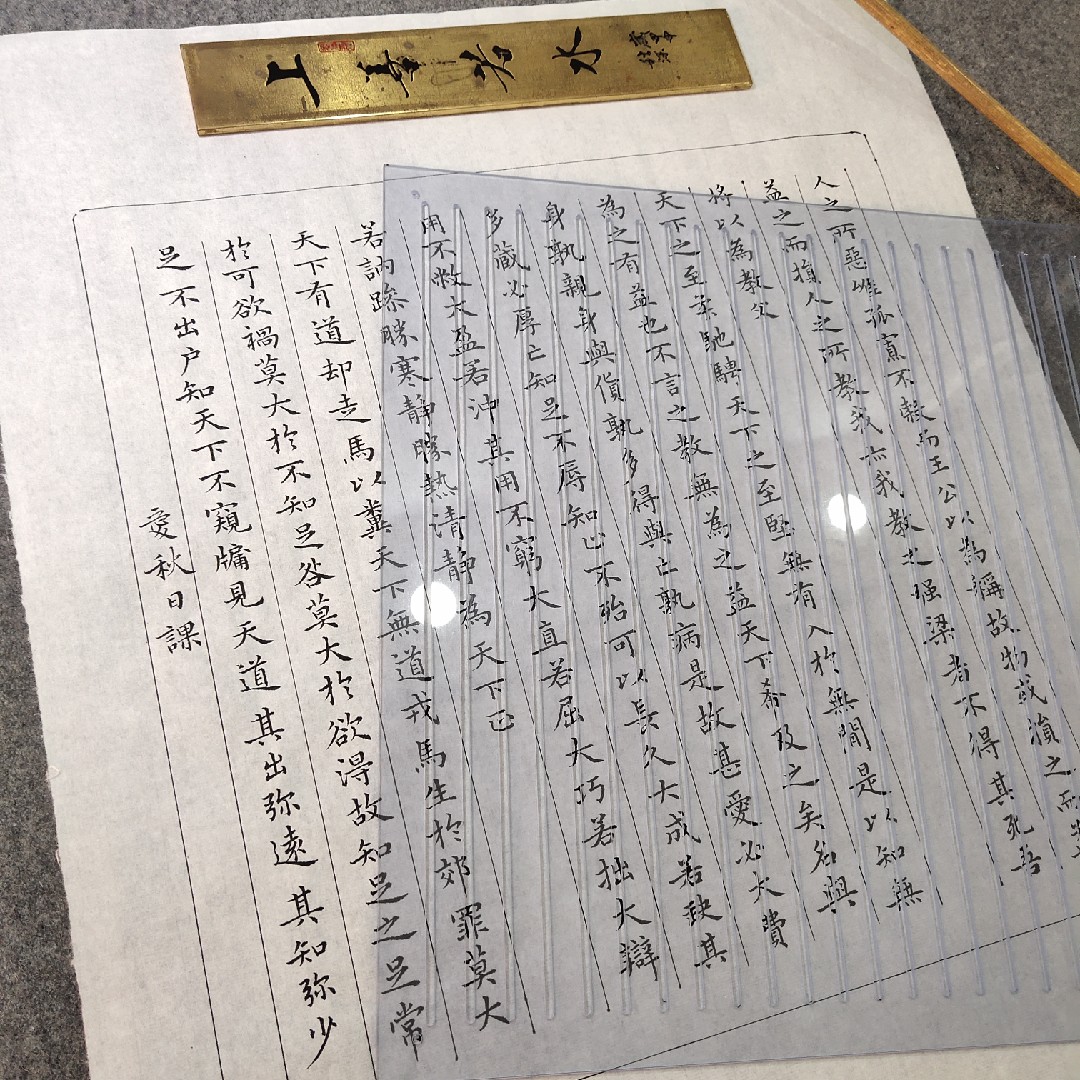 上善若水
人之所惡唯孤寡不穀而王公以為稱故物或損之而
益之而損人之所教我亦我教之强梁者不得其死吾
將以為教父
天下之至柔馳騁天下之至堅無有入於無間是以知無
為之有益也不言之教無為之益天下希及之矣名與
身孰親身與貨孰多得與亡孰病是故甚愛必大費
多藏必厚亡知足不辱知止不殆可以長久大成若缺其
用不敝大盈若沖其用不窮大直若屈大巧若拙大辯
若訥躁勝寒静勝熱清静為天下正
天下有道却走馬以糞天下無道戎馬生於郊罪莫大
於可欲禍莫大於不知足咎莫大於欲得故知足之足常
足不出户知天下不窺牖見天道其出弥遠其知弥少
愛秋日課